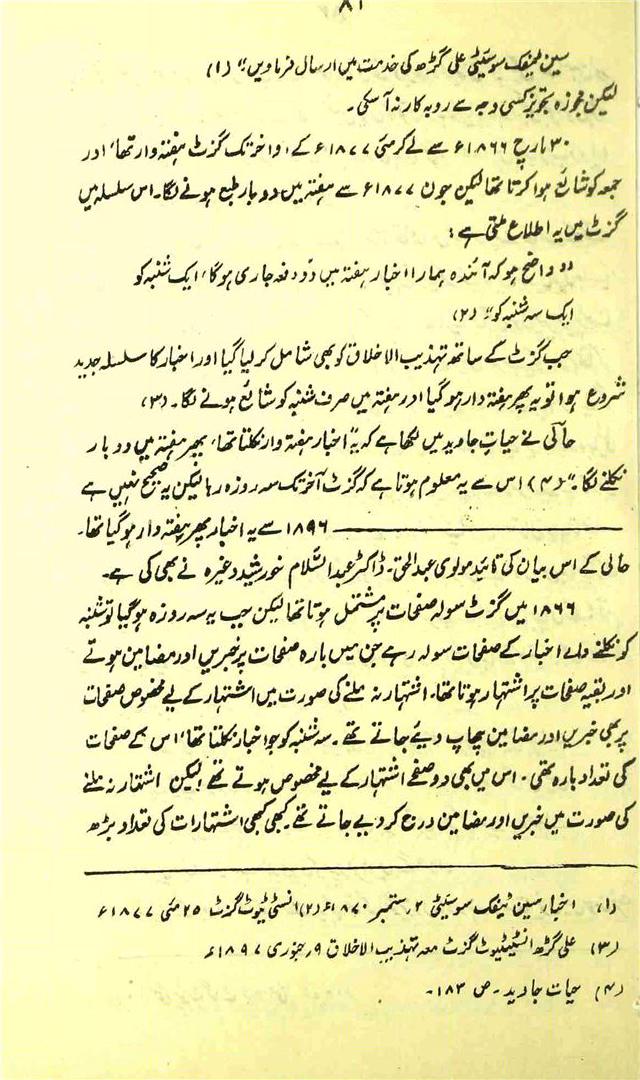 ۸۱
سین ٹیفک سوسیٔٹی علی گڑھ کی خدمت میں ارسال فرماویں" (۱)
لیکن مجوزہ تجویز کسی وجہ سے روبکار نہ آسکی۔
۳۰ مارچ ۱۸۶۶ء سے لے کر مئی ۱۸۷۷ء کے اواخر تک گزٹ ہفتہ وار تھا، اور
جمعہ کو شائع ہوا کرتا تھا لیکن جون ۱۸۷۷ء سے ہفتہ میں دو بار طبع ہونے لگا۔ اس سلسلہ میں
گزٹ میں یہ اطلاع ملتی ہے:
"واضح ہو کہ آئندہ ہمارا اخبار ہفتہ میں دو دفعہ جاری ہوگا، ایک شنبہ کو
ایک سہ شنبہ کو" (۲)
جب گزٹ کے ساتھ تہذیب الاخلاق کو بھی شامل کر لیا گیا اور اخبار کا سلسلہ جدید
شروع ہوا تو یہ پھر ہفتہ وار ہو گیا اور ہفتہ میں صرف شنبہ کو شائع ہونے لگا۔ (۳)
حالی نے حیات جاوید میں لکھا ہے کہ "یہ اخبار ہفتہ وار نکلتا تھا، پھر ہفتہ میں دو بار
نکلنے لگا۔" (۴) اس سے یہ معلوم ہوتا ہے کہ گزٹ آخر تک سہ روزہ رہا لیکن یہ صحیح نہیں ہے
——— ۱۸۹۶ سے یہ اخبار پھر ہفتہ وار ہو گیا تھا۔
حالی کے اس بیان کی تائید مولوی عبدالحق۔ ڈاکٹر عبدالسّلام خورشید وغیرہ نے بھی کی ہے۔
۱۸۶۶ میں گزٹ سولہ صفحات پر مشتمل ہوتا تھا لیکن جب یہ سہ روزہ ہو گیا تو شنبہ
کو نکلنے والے اخبار کے صفحات سولہ رہے جن میں بارہ صفحات پر خبریں اور مضامین ہوتے
اور بقیہ صفحات پر اشتہار ہوتا تھا۔ اشتہار نہ ملنے کی صورت میں اشتہار کے لیے مخصوص صفحات
پر بھی خبریں اور مضامین چھاپ دیئے جاتے تھے۔ سہ شنبہ کو جو اخبار نکلتا تھا، اس کے صفحات
کی تعداد بارہ تھی۔ اس میں بھی دو صفحے اشتہار کے لیے مخصوص ہوتے تھے لیکن اشتہار نہ ملنے
کی صورت میں خبریں اور مضامین درج کر دیے جاتے تھے۔ کبھی کبھی اشتہارات کی تعداد بڑھ
(۱) اخبار سین ٹیفک سوسیٔٹی ۲ ستمبر ۱۸۷۰ء (۲) انسٹی ٹیوٹ گزٹ ۲۵ مئی ۱۸۷۷ء
(۳) علی گڑھ انسٹیٹیوٹ گزٹ معہ تہذیب الاخلاق ۹ر جنوری ۱۸۹۷ء
(۴) حیات جاوید۔ ص ۱۸۳۔